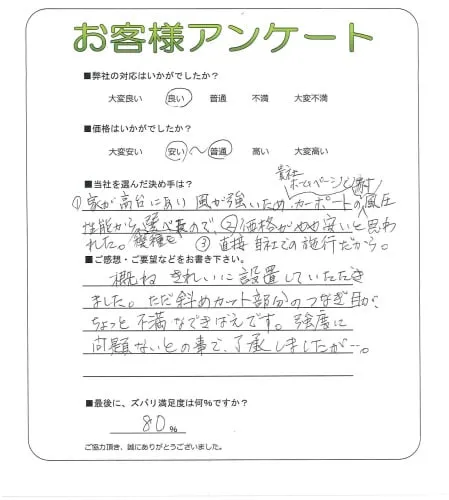 お客様アンケート
■弊社の対応はいかがでしたか?
大変良い 良い 普通 不満 大変不満
■価格はいかがでしたか?
大変安い 安い 〜 普通 高い 大変高い
■当社を選んだ決め手は?
貴社
ホームページで
①家が高台にあり 風が強いため、カーポートの風圧
性能から 選べたので、②価格がやや安いと思わ
れた。 機種を ③直接自社での施行だから。
■ご感想・ご要望などをお書き下さい。
概ね きれいに設置していただき
ました。ただ斜めカット部分のつなぎ目が、
ちょっと不満なできばえです。強度に
問題ないとの事で、了承しましたが…。
■最後に、ズバリ満足度は何%ですか?
80 %
ご協力頂き、誠にありがとうございました。